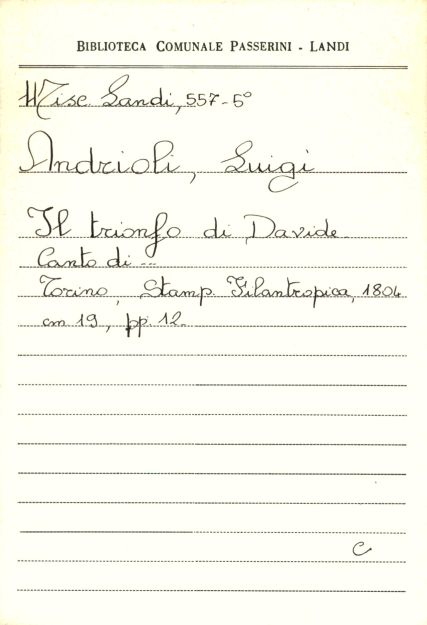 BIBLIOTECA COMUNALE PASSERINI - LANDI
Misc. Landi, 557-5°
Andrioli, Luigi
Il trionfo di Davide
Canto di ...
Torino, Stamp. Filantropica, 1804
cm 19, pp. 12.
C